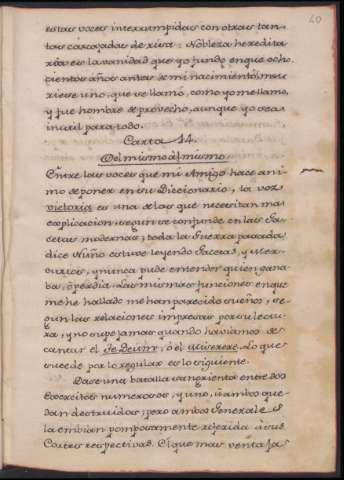 40
estas voces interrumpidas con otras tan-
tas carcajadas de risa: Nobleza heredita
ria es la vanidad que yo fundo en que ocho
cientos años antes de mi nacimiento mu
riese uno, que se llamó, como yo me llamo,
y fue hombre de provecho, aunque yo sea
inutil para todo.
Carta 14.
Del mismo al mismo
Entre las voces que mi Amigo hace ani
mo de poner en su Diccionario, la voz
victoria es una de las que necesitan mas
explicacion, segun se confunde en las Ga
cetas modernas; toda la Guerra pasada
dice Nuño estuve leyendo Gacetas, y Mer
curios, y nunca pude entender quien gana
ba, ó perdia. Las mismas funciones en que
me he hallado me han parecido sueños, se
gun las relaciones impresas por su lectu
ra, y no supe jamas quando haviamos de
cantar el Te Deum, ó el Miserere. Lo que
sucede por lo regular es lo siguiente.
Dase una batalla sangrienta entre dos
Exercitos numerosos, y uno, ú ambos que
dan destruidos; pero ambos Generales
la embian pomposamente referida á sus
Cortes respectivas. El que mas ventaja